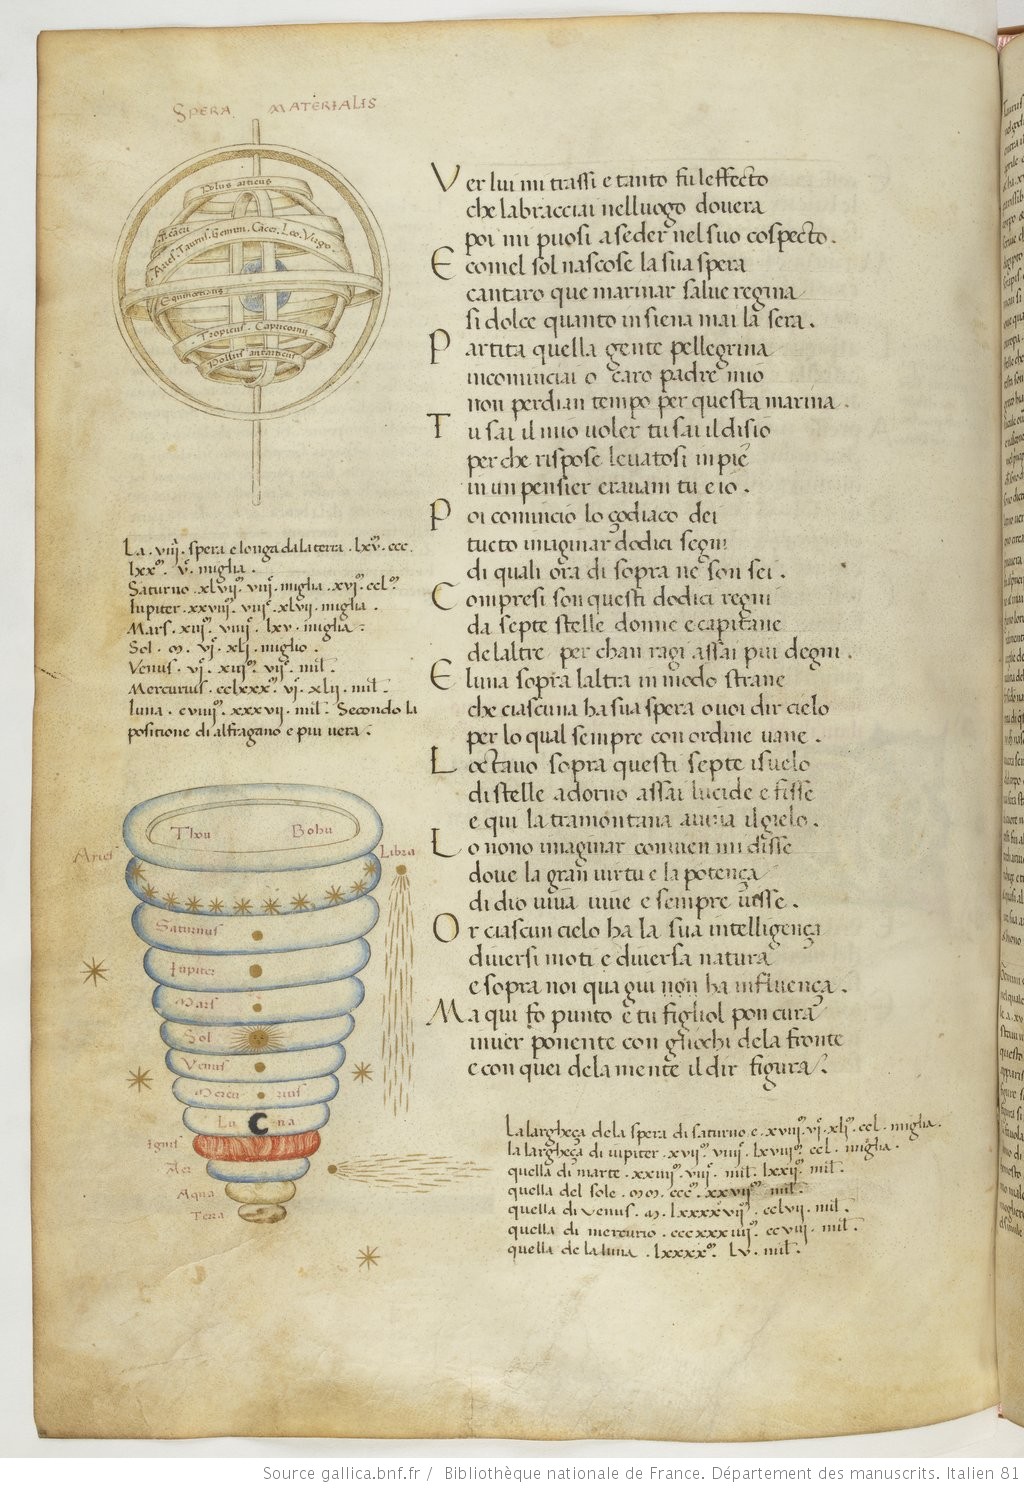 SPERA MATERIALIS
Polus articus
Aries. Taurus. Gemini. Cacer. Leo. Virgo.
Equinotialis
Tropicus. Capricorni
Pollus antarticus
Ver lui mi trassi e tanto fu leffecto
che labracciai nelluogo douera
poi mi puosi a seder nel suo cospecto.
E comel sol nascose la sua spera
cantaro que marinar salue regina
si dolce quanto in siena mai la sera.
Partita quella gente pellegrina
incominciai o caro padre mio
non perdian tempo per questa marina.
Tu sai il mio uoler tu sai il disio
per che rispose leuatosi in pie
in un pensier erauam tu e io.
Poi comincio lo çodiaco dei
tucto imaginar dodici segni
di quali ora di sopra ne son sei.
Compresi son questi dodici regni
da septe stelle donne e capitane
de laltre per chan ragi assai piu degni.
E luna sopra laltra in modo strane
che ciascuna ha sua spera o uoi dir cielo
per lo qual sempre con ordine uane.
Loctauo sopra questi septe isuelo
di stelle adorno assai lucide e fisse
e qui la tramontana auuia il gielo.
Lo nono imaginar conuien mi disse
doue la gran uirtu e la potença
di dio uiua uiue e sempre uisse.
Or ciascun cielo ha la sua intelligença
diuersi moti e diuersa natura
e sopra noi qua giu non ha influença.
Ma qui fo punto e tu figliol pon cura
inuer ponente con gliochi de la fronte
e con quei de la mente il dir figura.
La. viii. spera e longa da la terra. lxv. ccc.
lxxm. vc. miglia.
Saturno. xlviim. viiiic. miglia. xvim. cclm.
Iupiter. xxviiim. viiic. xlvii. miglia.
Mars. xiim. viiiic. lxv. miglia.
Sol. m. vic. xli. miglio.
Venus. vic. xiiim. viic. mil.
Mercurius. cclxxxm. vic. xlii. mil.
luna. cviiiim. xxxvii. mil. Secondo la
positione di alfragano e piu uera.
Thou Bohu
Aries
Libra
Saturnus
Iupiter
Mars
Sol
Venus
Mercurius
Luna
Ignis
Aer
Aqua
Terra
La largheça de la spera di saturno e. xviiim. vic. xlim. ccl. miglia.
la largheça di iupiter. xviim. viiiic. lxviiim. ccl. miglia.
quella di marte. xxiiiim. viiic. mil. lxxiim. mil.
quella del sole. mm. cccc. xxviim. mil.
quella di uenus. m. lxxxxviim. cclvii. mil.
quella di mercurio. cccxxxiiiim. ccviii. mil.
quella de la luna. lxxxxm. lv. mil.
Source gallica.bnf.fr / Bibliothèque nationale de France. Département des manuscrits. Italien 81